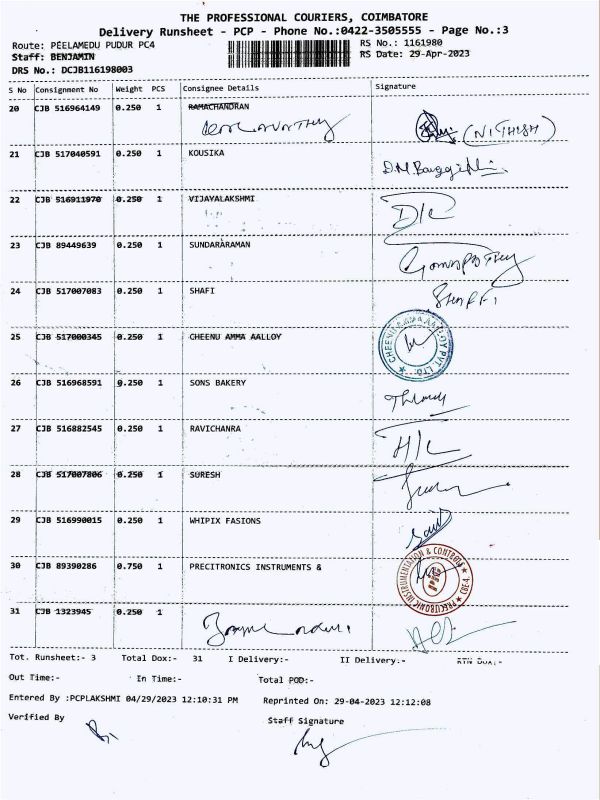 THE PROFESSIONAL COURIERS, COIMBATORE
Delivery Runsheet - PCP - Phone No.:0422-3505555 - Page No.:3
Route: PEELAMEDU PUDUR PC4 RS No.: 1161980
Staff: BENJAMIN RS Date: 29-Apr-2023
DRS No.: DCJB116198003
S No Consignment No Weight PCS Consignee Details Signature
20 CJB 516964149 0.250 1 RAMACHANDRAN
(NITHISH)
21 CJB 517040591 0.250 1 KOUSIKA
22 CJB 516911970 0.250 1 VIJAYALAKSHMI
D/C
23 CJB 89449639 0.250 1 SUNDARARAMAN
24 CJB 517007083 0.250 1 SHAFI
25 CJB 517000345 0.250 1 CHEENU AMMA AALLOY
CHEENU AMMA AALLOY PVT. LTD.
26 CJB 516968591 0.250 1 SONS BAKERY
27 CJB 516882545 0.250 1 RAVICHANRA
H/C
28 CJB 517007806 0.250 1 SURESH
29 CJB 516990015 0.250 1 WHIPIX FASIONS
30 CJB 89390286 0.750 1 PRECITRONICS INSTRUMENTS &
PRECITRONIC INSTRUMENTATION & CONTROLS
31 CJB 1323945 0.250 1
Tot. Runsheet:- 3 Total Dox:- 31 I Delivery:- II Delivery:- RTN Dox:-
Out Time:- In Time:- Total POD:-
Entered By :PCPLAKSHMI 04/29/2023 12:10:31 PM Reprinted On: 29-04-2023 12:12:08
Verified By Staff Signature